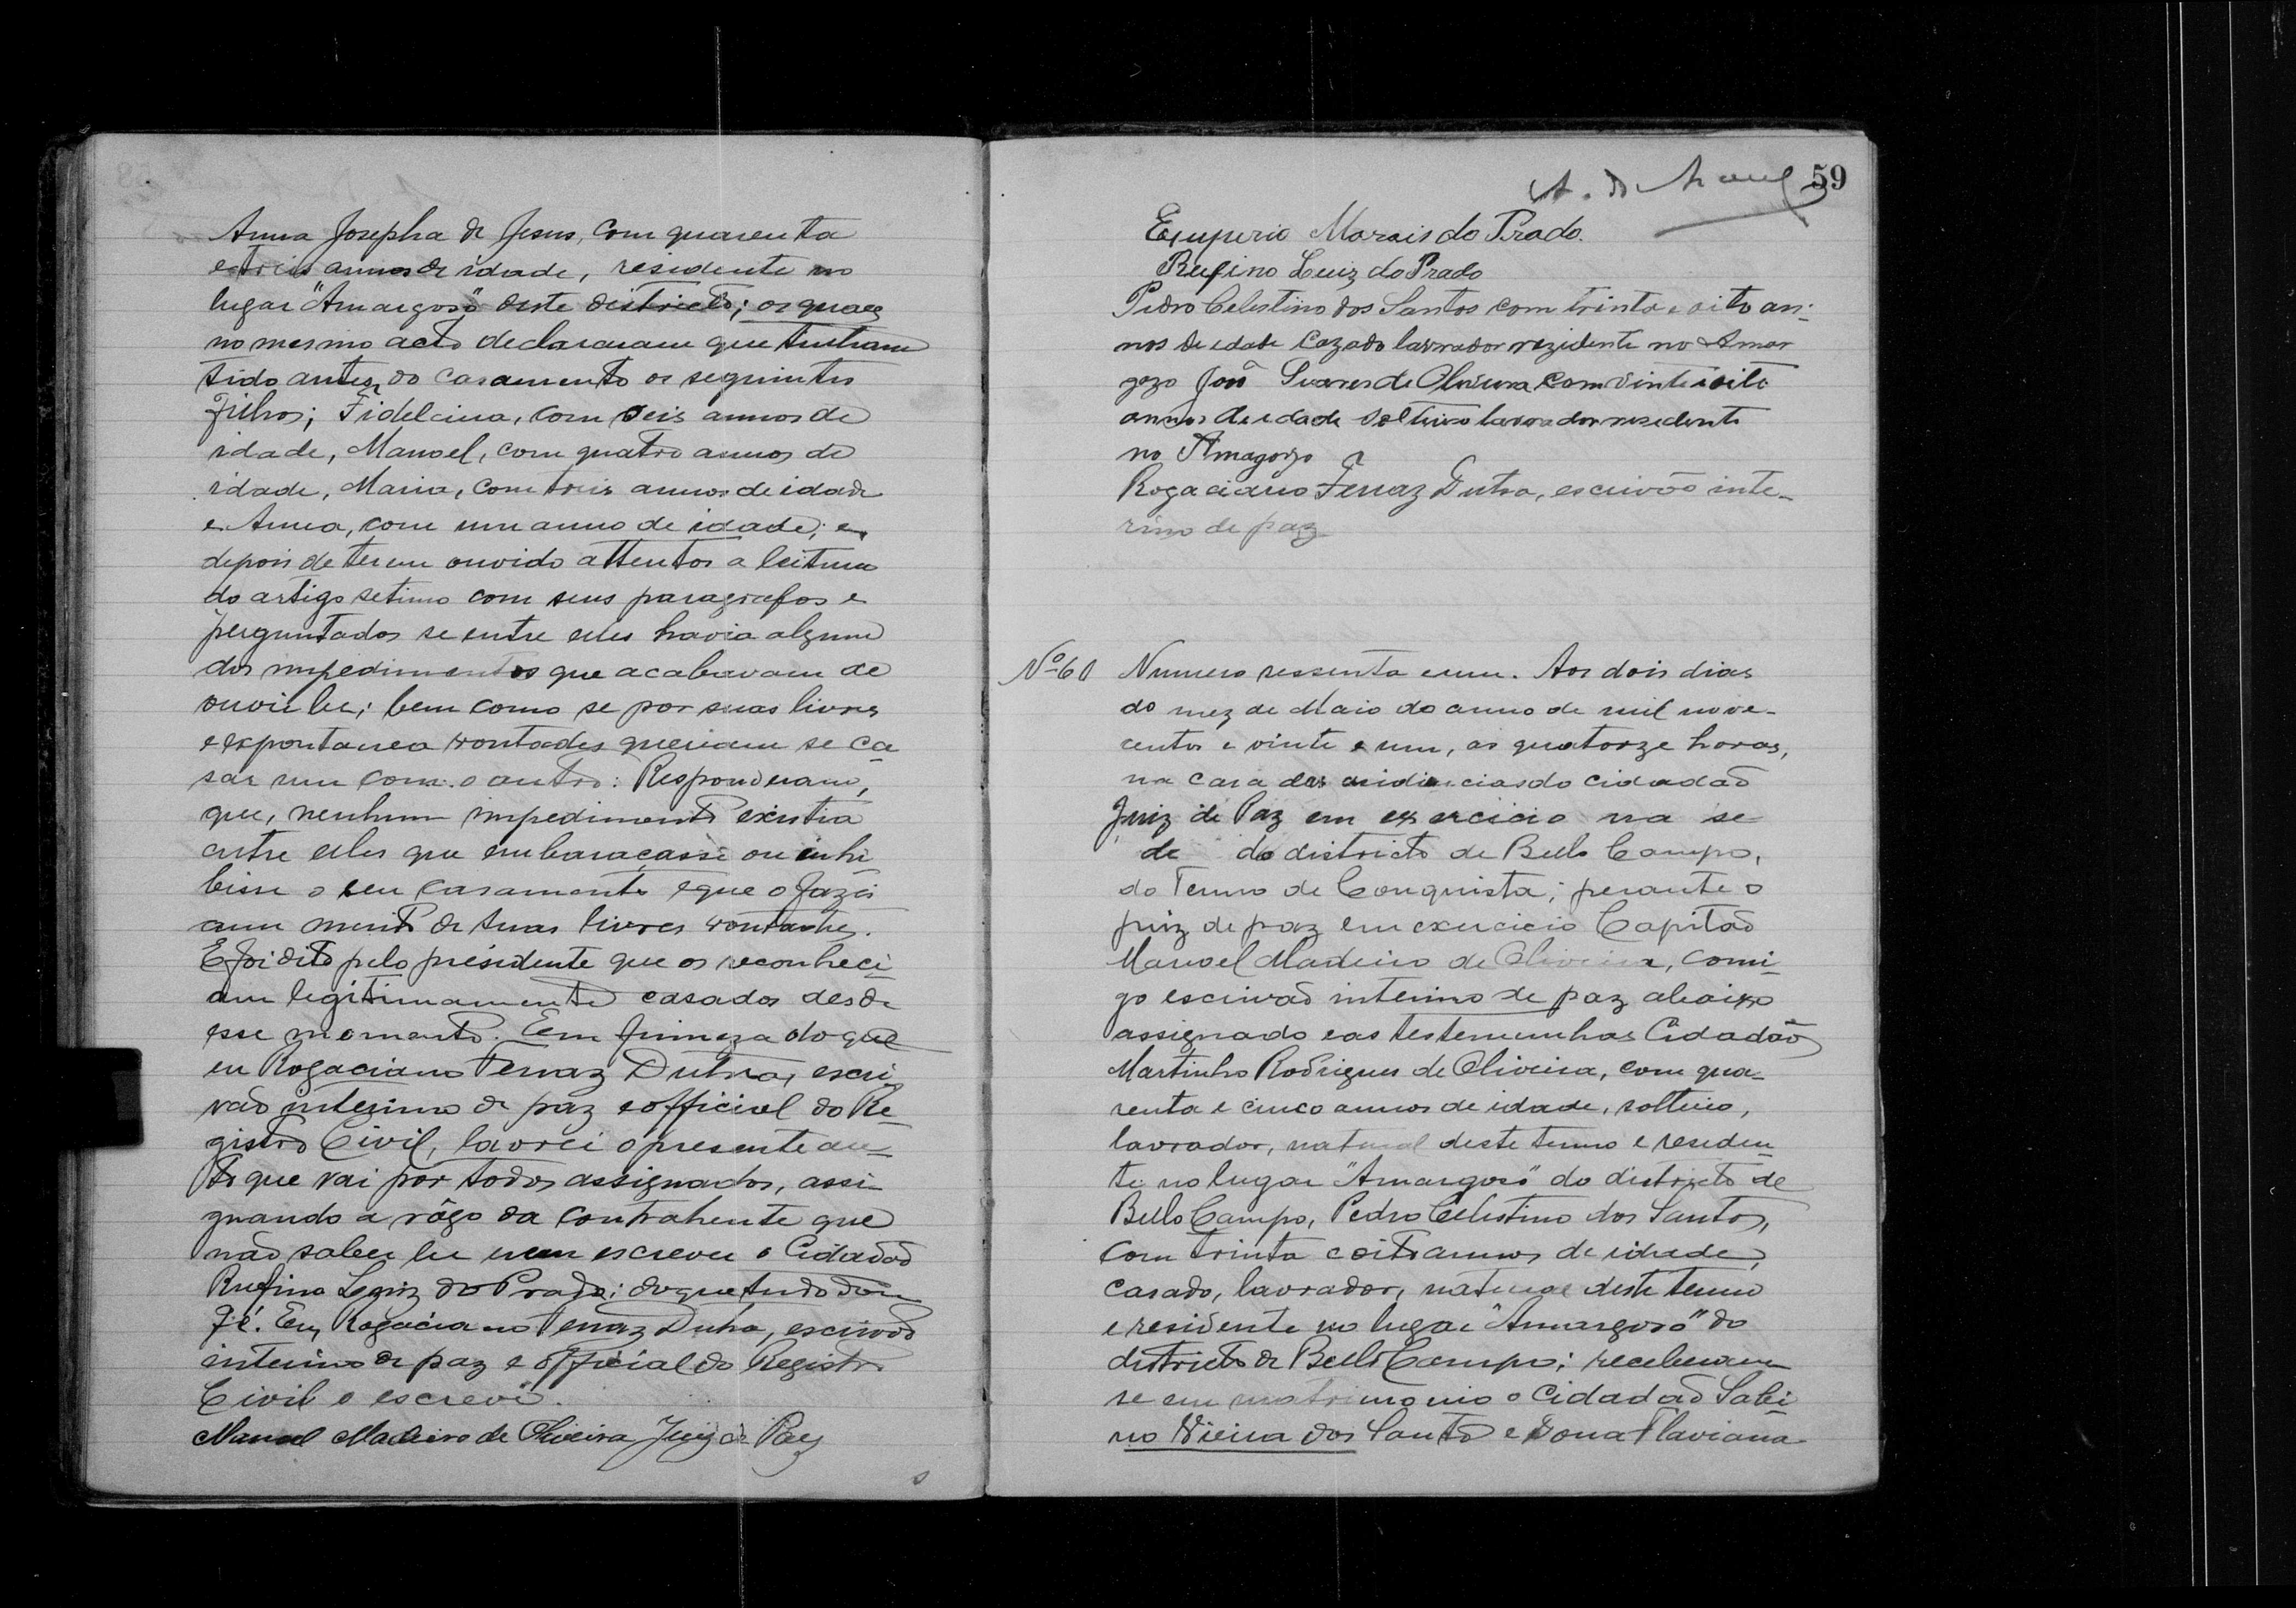 Anna Josepha de Jesus, com quarenta
e treis annos de idade, residente no
lugar "Amargoso" deste districto; os quaes
no mesmo acto declararam que tinham
tido antes do casamento os seguintes
filhos; Fidelcina, com seis annos de
idade, Manoel, com quatro annos de
idade, Maria, com treis annos de idade
e Anna, com um anno de idade; e,
depois de terem ouvido attentos a leitura
do artigo setimo com seus paragrafos e
perguntados se entre elles havia algum
dos impedimentos que acabavam de
ouvir ler; bem como se por suas livres
e expontanea vontades queriam se ca-
sar um com o outro: Responderam,
que, nenhum impedimento existia
entre elles que embaraçasse ou inhi
bisse o seu casamento e que o fazi
am muito de suas livres vontades.
E foi dito pelo presidente que os reconheci
am legitimamente casados desde
esse momento. Em firmeza do que
eu Rogaciano Ferraz Dutra, escri
vão interino de paz e official do Re-
gistro Civil, lavrei o presente au-
to que vai por todos assignados, assi
gnando a rôgo da contrahente que
não saber ler nem escrever o Cidadão
Rufino Luiz do Prado; do que tudo dou
fé. Eu, Rogaciano Ferraz Dutra, escrivão
interino de paz e official do Registro
Civil o escrevi.
Manoel Madeiro de Oliveira Juiz de Paz
59
Exuperio Morais do Prado.
Rufino Luiz do Prado
Pedro Celestino dos Santos com trinta e oito an-
nos de edade cazado lavrador rezidente no Amar
gozo João Soares de Oliveira com vinte i oito
annos de edade solteiro lavrador residente
no Amagozo
Rogaciano Ferraz Dutra, escrivão inte-
rino de paz
Nº 61 Numero sessenta e um. Aos dois dias
do mez de Maio do anno de mil nove-
centos e vinte e um, as quatorze horas,
na casa das audiencias do cidadão
Juiz de Paz em exercicio na se
de do districto de Bello Campo,
do Termo de Conquista; perante o
juiz de paz em exercicio Capitão
Manoel Madeiro de Oliveira, comi-
go escrivão interino de paz abaixo
assignado e as testemunhas Cidadão
Martinho Rodrigues de Oliveira, com qua-
renta e cinco annos de idade, solteiro,
lavrador, natural deste termo e residen-
te no lugar "Amargoso" do districto de
Bello Campo, Pedro Celestino dos Santos,
com trinta e oito annos de idade,
casado, lavrador, natural deste termo
e residente no lugar "Amargoso" do
districto de Bello Campo; receberam
se em matrimonio o Cidadão Sabi-
no Vieira dos Santos e Dona Flaviana